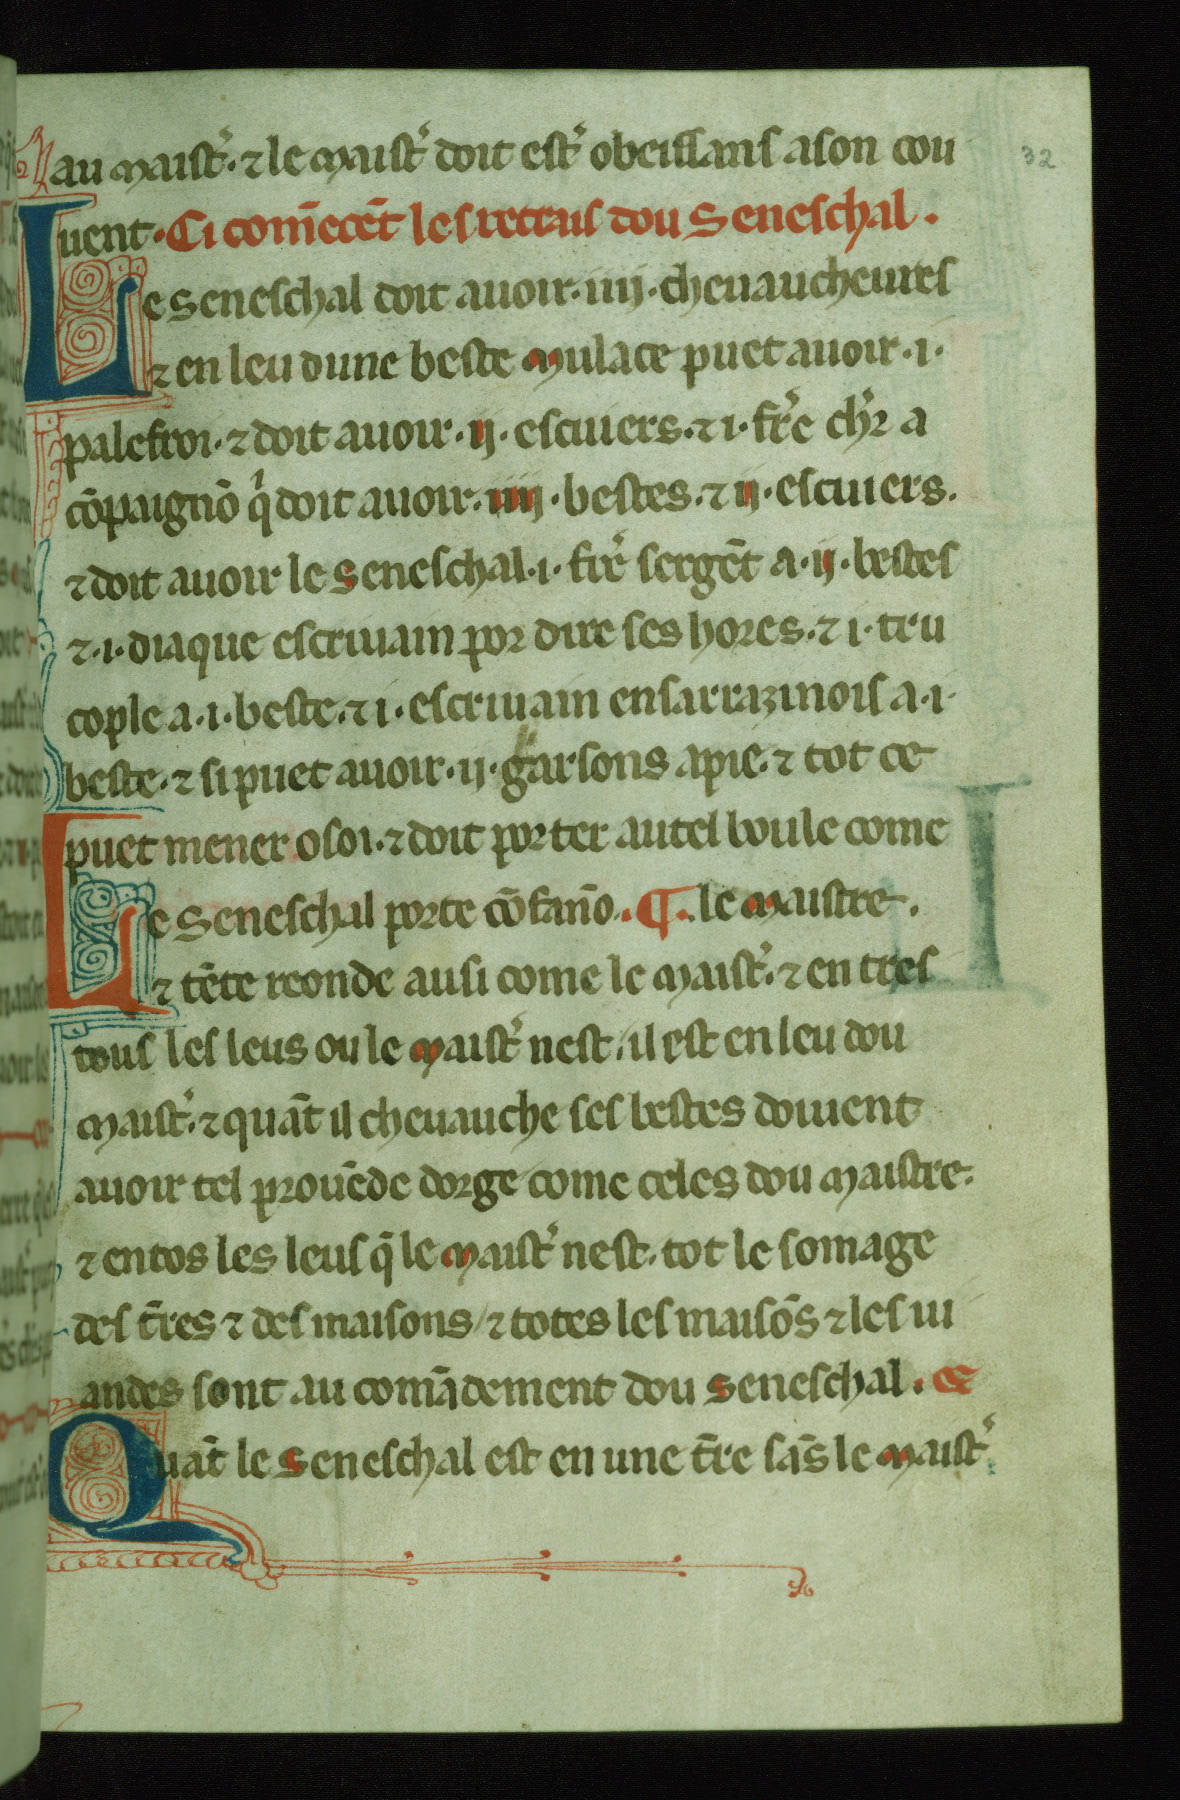 32
au maist͛. ⁊ le maist͛ doit est͛ obeissans a son cou
uent. Ci com̄ecēt les retrais dou Seneschal.
Le Seneschal doit auoir .iiij. cheuaucheures
⁊ en leu dune beste mulace puet auoir .i.
palefroi. ⁊ doit auoir .ij. escuiers. ⁊ i. fr͛e ch͛r a
cōpaignō q͛ doit auoir .iiij. bestes. ⁊ ij. escuiers.
⁊ doit auoir le Seneschal .i. fr͛e sergēt a .ij. bestes
⁊ .i. diaque escriuain por dire ses hores. ⁊ i. tru
cople a .i. beste. ⁊ i. escriuain en sarrazinois a .i.
beste. ⁊ si puet auoir .ij. garsons a pie. ⁊ tot ce
puet mener o soi. ⁊ doit porter autel boule come
Le Seneschal porte cōfanō. ¶ le maistre.
⁊ tēte reonde ausi come le maist͛. ⁊ en tres
tous les leus ou le maist͛ nest. il est en leu dou
maist͛. ⁊ quāt il cheuauche ses bestes doiuent
auoir tel prouēde dorge come celes dou maistre.
⁊ en tos les leus q̄ le maist͛ nest. tot le somage
des t̄res ⁊ des maisons / ⁊ totes les maisōs ⁊ les ui
andes sont au comādement dou Seneschal.
Quāt le Seneschal est en une t̄re sās le maist͛